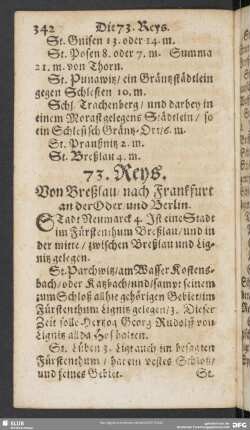 342 Die 73. Reys.
St. Guisen 13. oder 14. m.
St. Posen 8. oder 7. m. Summa
21. m. von Thorn.
St. Punawitz / ein Gräntzstädtlein
gegen Schlesien 10. m.
Schl. Trachenberg / und darbey in
einem Morast gelegens Städtlein / so
ein Schlesisch Gräntz-Ort / 6. m.
St. Praußnitz 2. m.
St. Breßlau 4. m.
73. Reys.
Von Breßlau / nach Franckfurt
an der Oder und Berlin.
STadt Neumarck 4. Ist eine Stadt
im Fürstenthum Breßlau / und in
der mitte / zwischen Breßlau und Lig-
nitz gelegen.
St. Parchwitz / am Wasser Kostens-
bach / oder Katzbach / und / sampt seinem
zum Schloß allhie gehörigen Gebiet / im
Fürstenthum Lignitz gelegen / 3. Dieser
Zeit solle Hertzog Georg Rudolff von
Lignitz allda Hof halten.
St. Lüben 3. Ligt auch im besagten
Fürstenthum / hat ein vestes Schloß /
und seines Gebiet. St.
SLUB
DFG